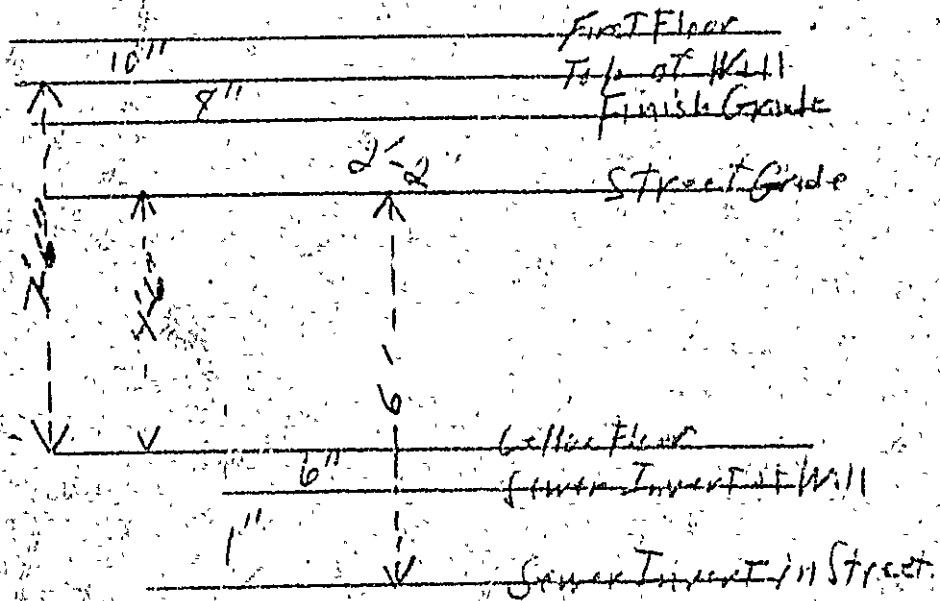 First Floor
10"
Top of Wall
8"
Finish Grade
2'-2
Street Grade
6
Cellar Floor
6"
Sewer Invert at Wall
1"
Sewer Invert in Street